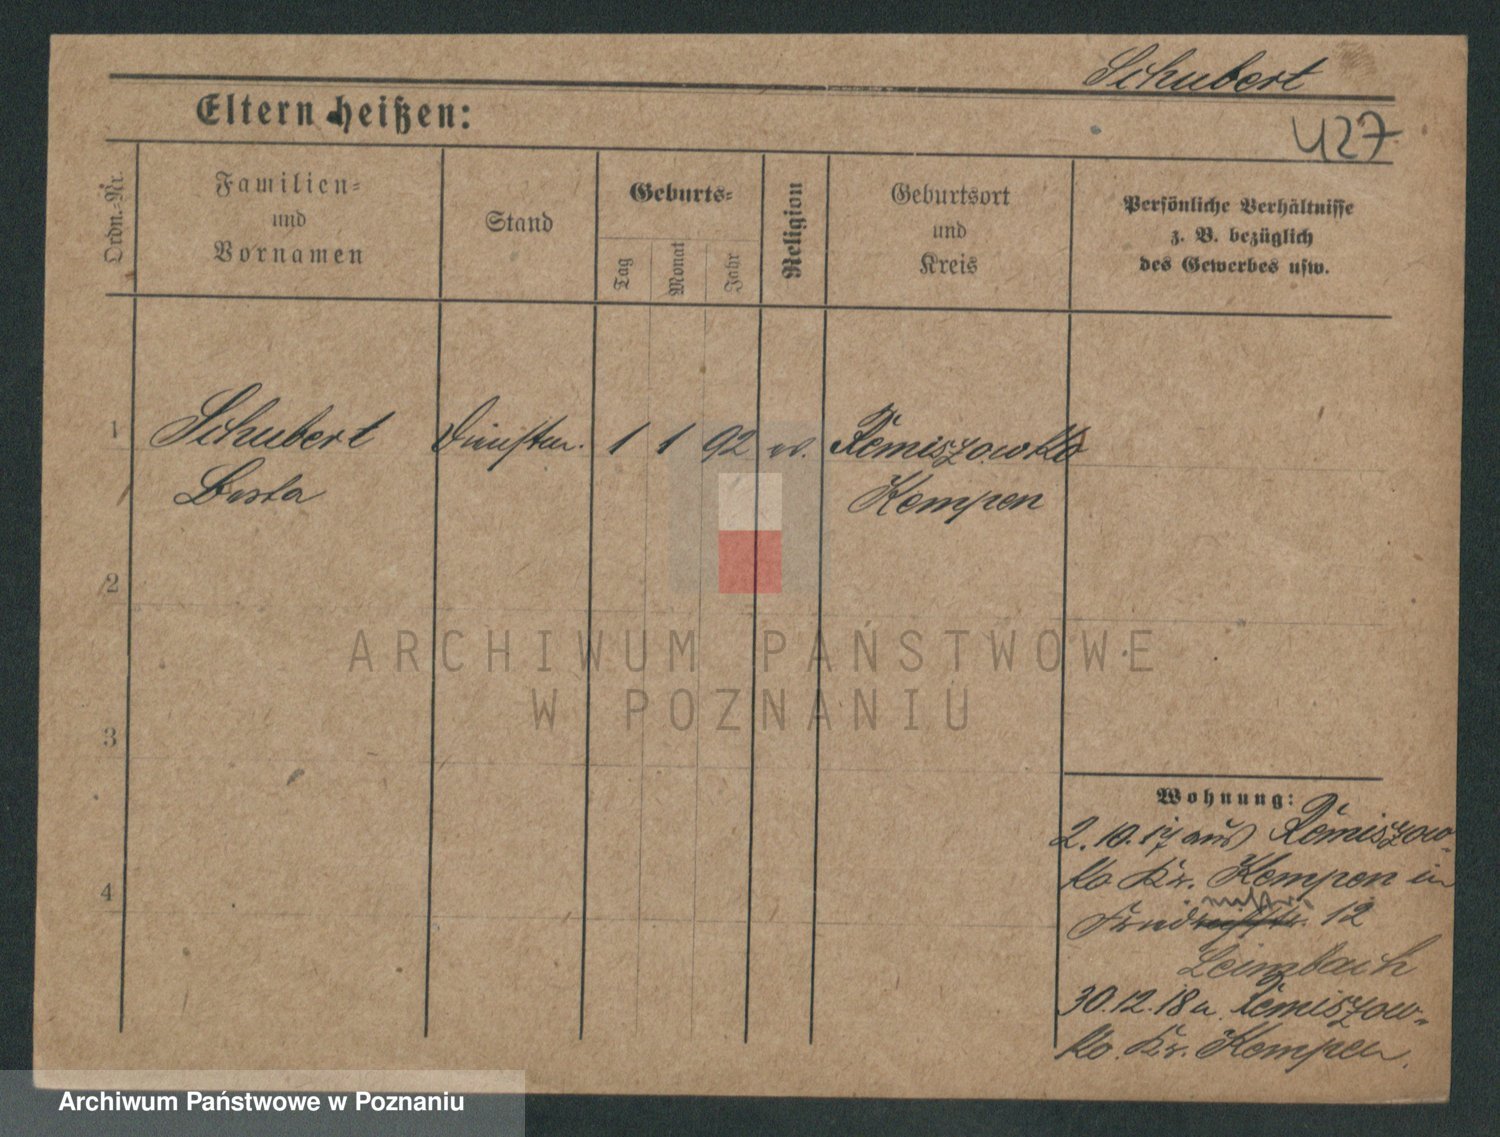 Schubert
Eltern heißen:
427
Ordn.-Nr.
Familien-
und
Vornamen
Stand
Geburts-
Tag
Monat
Jahr
Religion
Geburtsort
und
Kreis
Persönliche Verhältnisse
z. B. bezüglich
des Gewerbes usw.
1
Schubert
1 1 92 ev.
Kempen
2
3
4
ARCHIWUM PAŃSTWOWE
W POZNANIU
Wohnung:
2.10.17 aus
Kr. Kempen in
12
Leimbach
30.12.18 n.
Kr. Kempen.
Archiwum Państwowe w Poznaniu